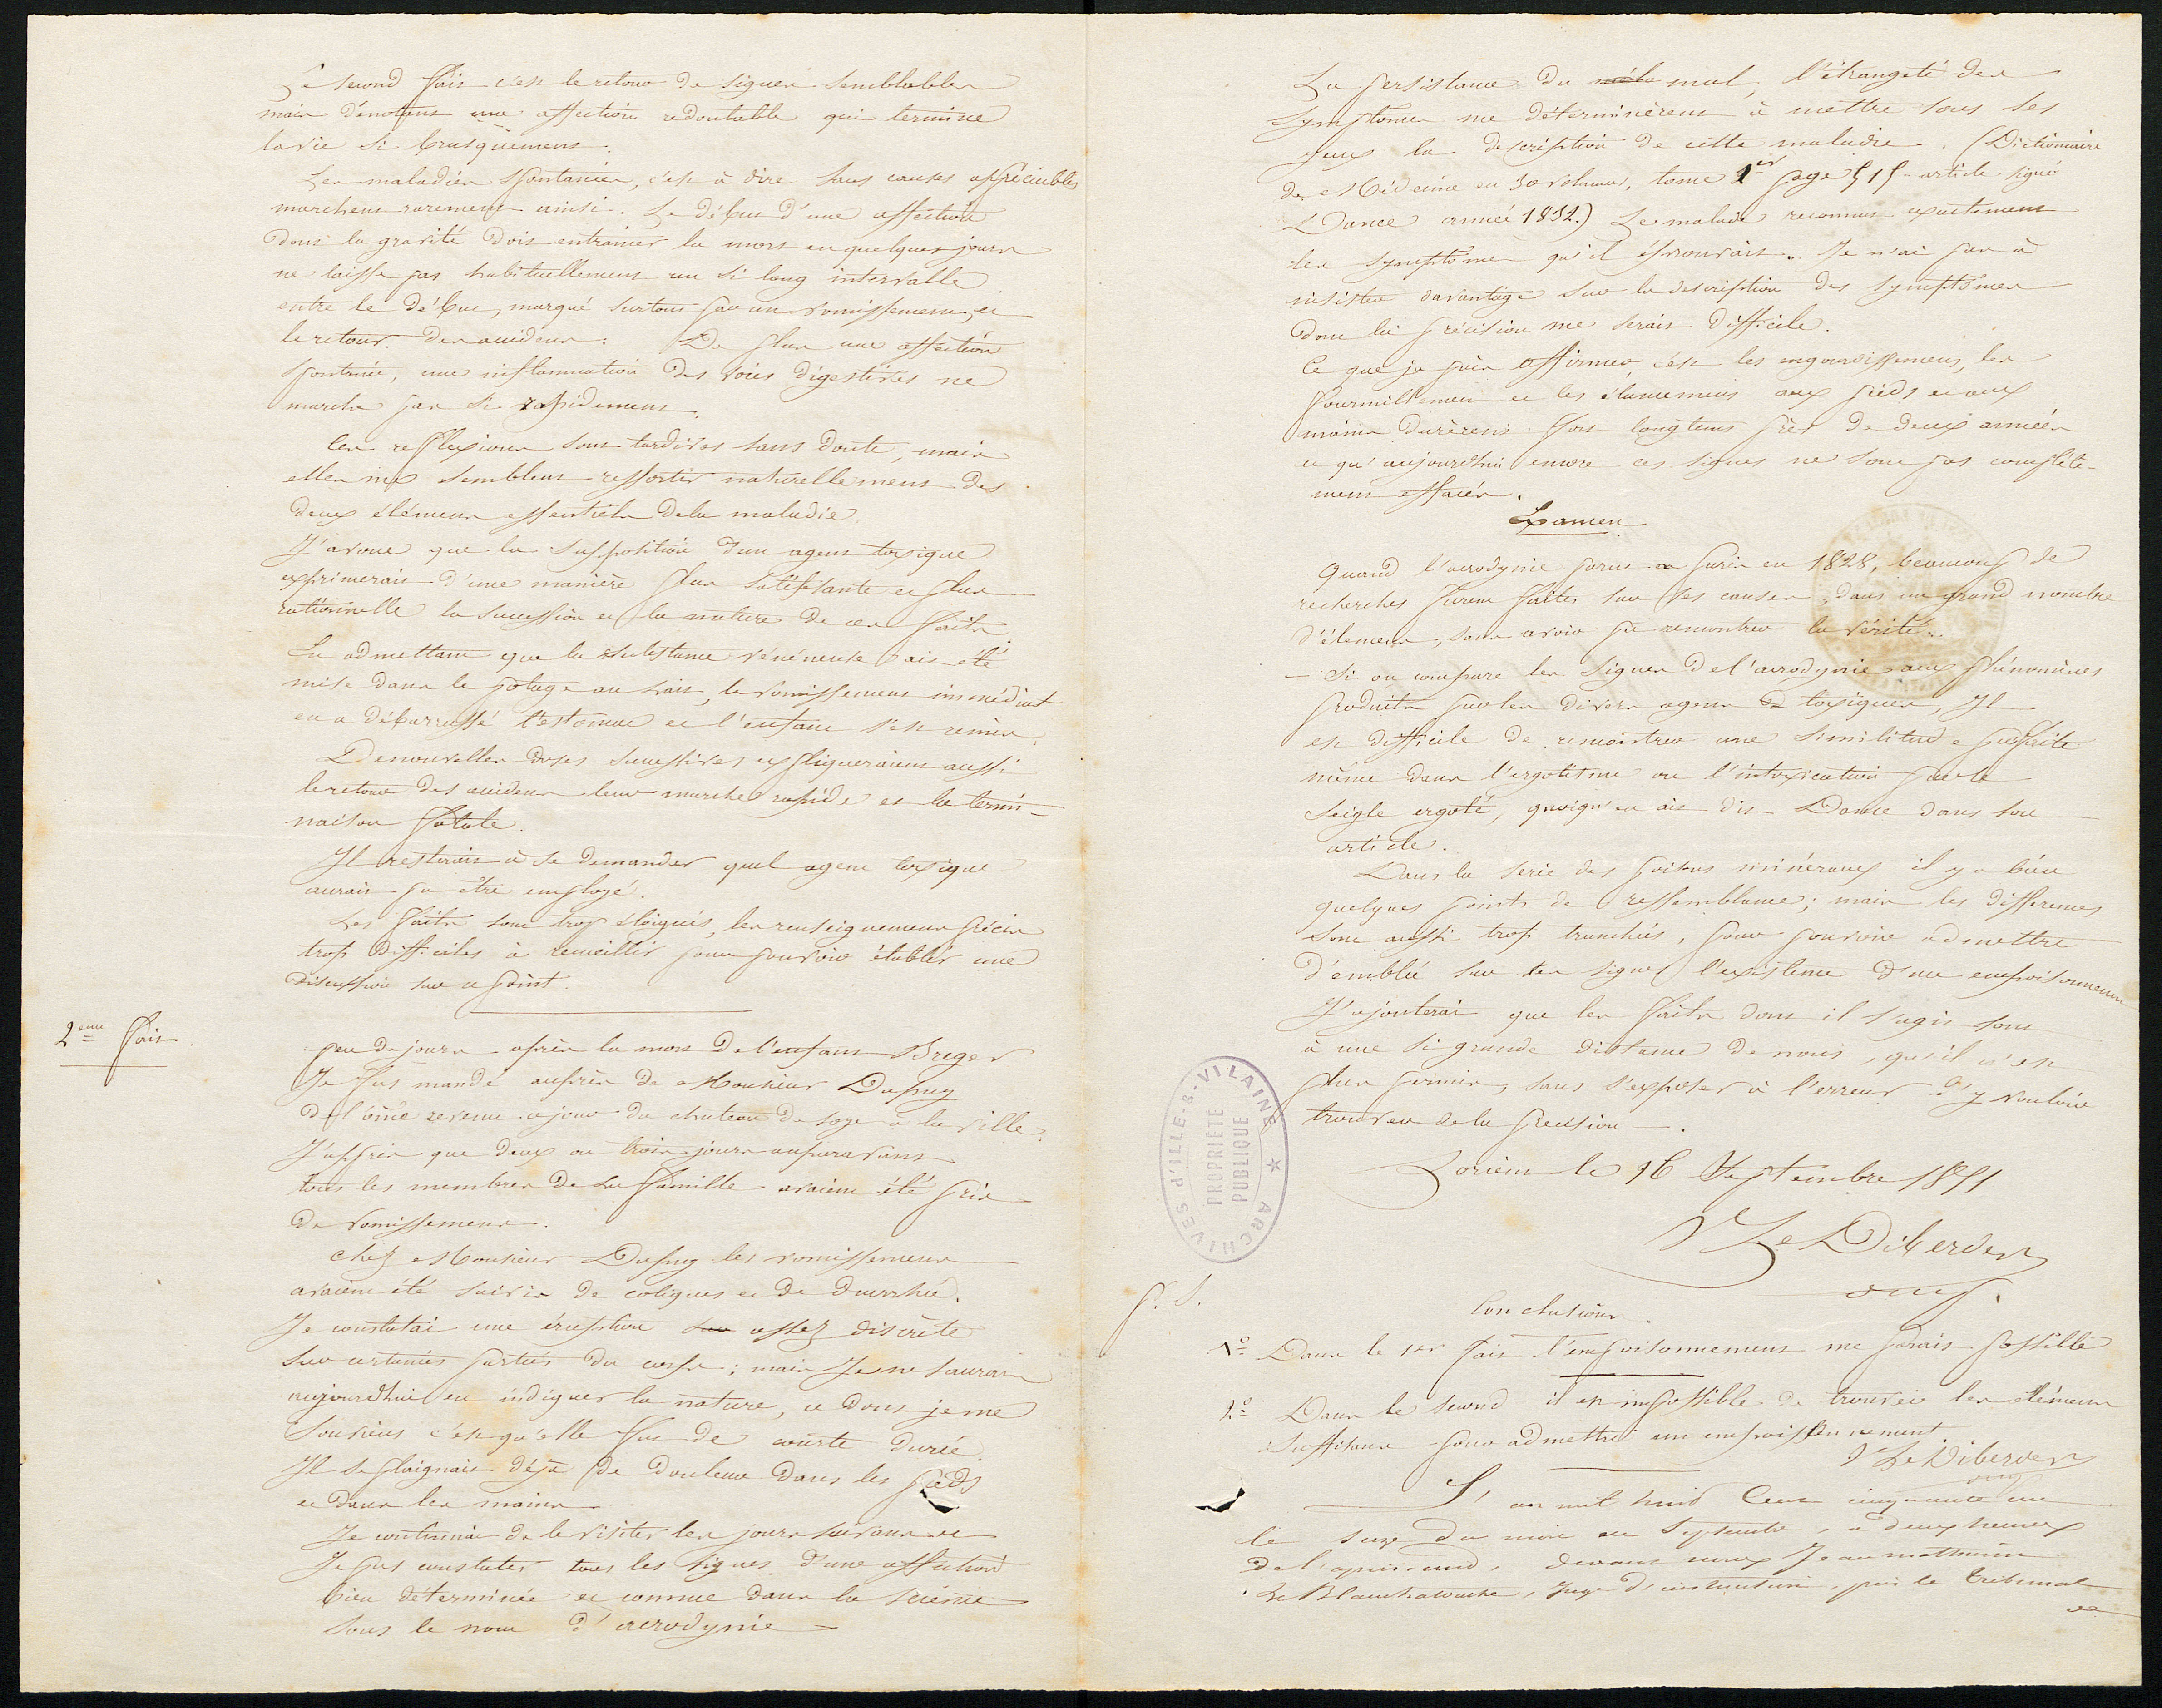 Le second fait c'est le retour de signes semblables
mais dénotant une affection redoutable qui termine
la vie si brusquement.
Les maladies spontanées, c'est à dire sans causes appréciables
marchent rarement ainsi. Le début d'une affection
dont la gravité doit entrainer la mort en quelques jours
ne laisse pas habituellement un si long intervalle
entre le début, marqué surtout par un vomissement, et
le retour des accidents. De plus une affection
spontanée, une inflammation des voies digestives ne
marche pas si rapidement.
Ces reflexions sont tardives sans doute, mais
elles me semblent ressortir naturellement des
deux élémens essentiels de la maladie.
J'avoue que la supposition d'un agent toxique
exprimerait d'une manière plus satisfaisante et plus
rationnelle la succession et la nature de ces faits
En admettant que la substance vénéneuse ait été
mise dans le potage au lait, le vomissement immédiat
en a débarrassé l'estomac et l'enfant s'est remis.
De nouvelles doses successives expliqueraient aussi
le retour des accidens leur marche rapide et la termi-
naison fatale.
Il resterait à se demander quel agent toxique
aurait pu être employé.
Les faits sont trop éloignés, les renseignemens précis
trop difficiles à recueillir pour pouvoir établir une
discussion sur ce point.
2eme fait.
peu de jours après la mort de l'enfant Breger
Je fus mandé auprès de Monsieur Dupuy
de l'ôme revenu ce jour du chateau de Soye à la ville.
J'appris que deux ou trois jours auparavant
tous les membres de la famille avaient été pris
de vomissemens.
chez Monsieur Dupuy les vomissemens
avaient été suivis de coliques et de diarrhée.
Je constatai une éruption assez discrète
sur certaines parties du corps; mais Je ne saurais
aujourdhui en indiquer la nature, ce dont je me
souviens c'est qu'elle fut de courte durée.
Il se plaignait déjà de douleur dans les pieds
et dans les mains
Je continuai de le visiter les jours suivans et
Je pus constater tous les signes d'une affection
bien déterminée et connue dans la science
sous le nom d'acrodynie
La persistance du mal, l'étrangeté des
symptomes me déterminèrent à mettre sous ses
yeux la description de cette maladie. (Dictionnaire
de Médecine en 30 volumes, tome 1er page 515 article signé
Dance année 1832.) Le malade reconnut exactement
les symptômes qu'il éprouvait. Je n'ai pas à
insister davantage sur la description des symptômes
dont la précision me serait difficile.
Ce que je puis affirmer, c'est les engourdissemens, les
fourmillemens et les élancemens aux pieds et aux
mains durèrent fort longtems près de deux années
et qu'aujourdhui encore ces signes ne sont pas complète-
ment effacés.
Examen
Quand l'acrodynie parut à Paris en 1828, beaucoup de
recherches furent faites sur ses causes, dans un grand nombre
d'élemens, sans avoir pu rencontrer la vérité.
- Si on compare les signes de l'acrodynie aux phénomènes
produits par les divers agens toxiques, Il
est difficile de rencontrer une similitude parfaite
même dans l'ergotisme ou l'intoxication par le
seigle ergoté, quoiqu'en ait dit Dance dans son
article.
Dans la série des poisons minéraux il y a bien
quelques points de ressemblance; mais les différences
sont aussi trop tranchées, pour pouvoir admettre
d'emblée sur ces signes l'existence d'un empoisonnement
J'ajouterai que les faits dont il s'agit sont
à une si grande distance de nous, qu'il n'est
plus permis, sans s'exposer à l'erreur d'y vouloir
trouver de la précision.
Lorient le 16 Septembre 1851
Le Diberder
dmp.
ARCHIVES D'ILLE-&-VILAINE
PROPRIÉTÉ
PUBLIQUE
P. S.
Conclusions
1° Dans le 1er fait l'empoisonnement me parait possible
2° Dans le second il est impossible de trouver les élémens
suffisans pour admettre un empoisonnement.
Le Diberder
dmp
L'an mil huit Cent cinquante un
le seize du mois de Septembre, à deux heures
de l'après-midi, devant nous Jean mathurin
Le Blanchatouche, juge d'instruction, près le tribunal
de